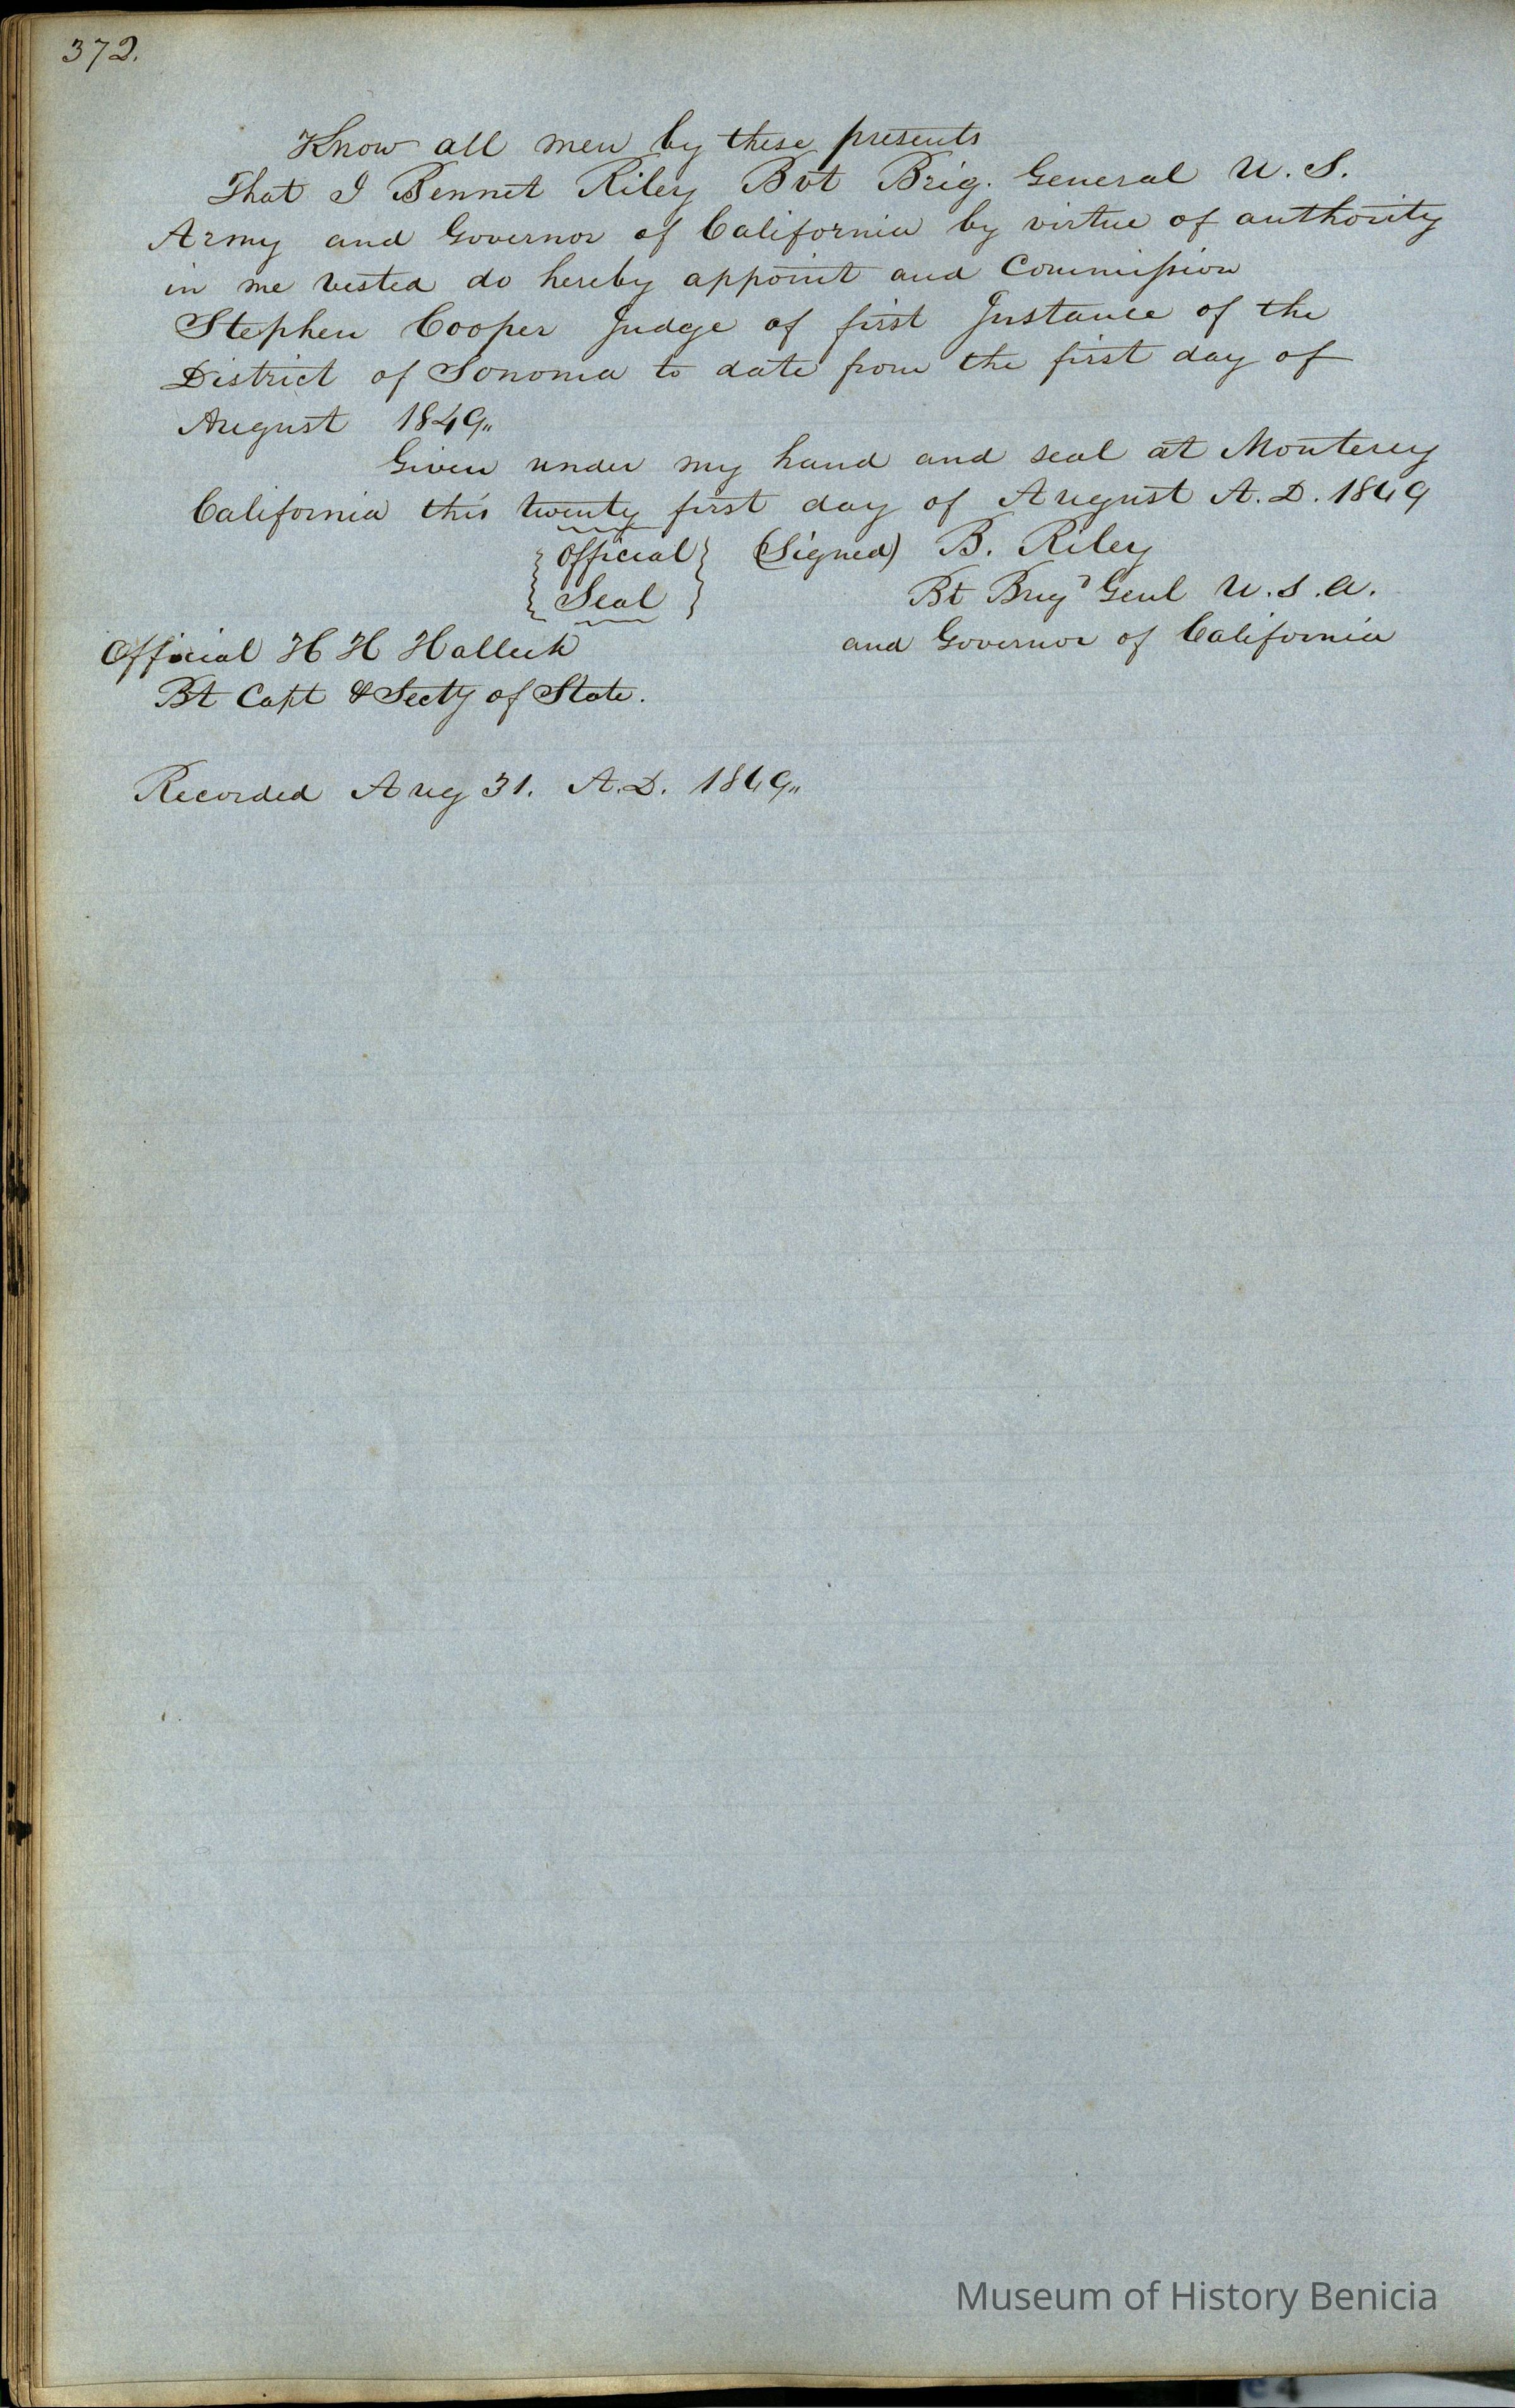 372.
Know all men by these presents
That I Bennet Riley Bvt Brig. General U. S.
Army and Governor of California by virtue of authority
in me vested do hereby appoint and Commission
Stephen Cooper Judge of first Instance of the
District of Sonoma to date from the first day of
August 1849,,
Given under my hand and seal at Monterey
California this twenty first day of August A. D. 1849
Official (Signed) B. Riley
Seal Bt Brigd Genl U. S. A.
Official H H Halleck and Governor of California
Bt Capt & Secty of State.
Recorded Aug 31. A.D. 1849,,
Museum of History Benicia